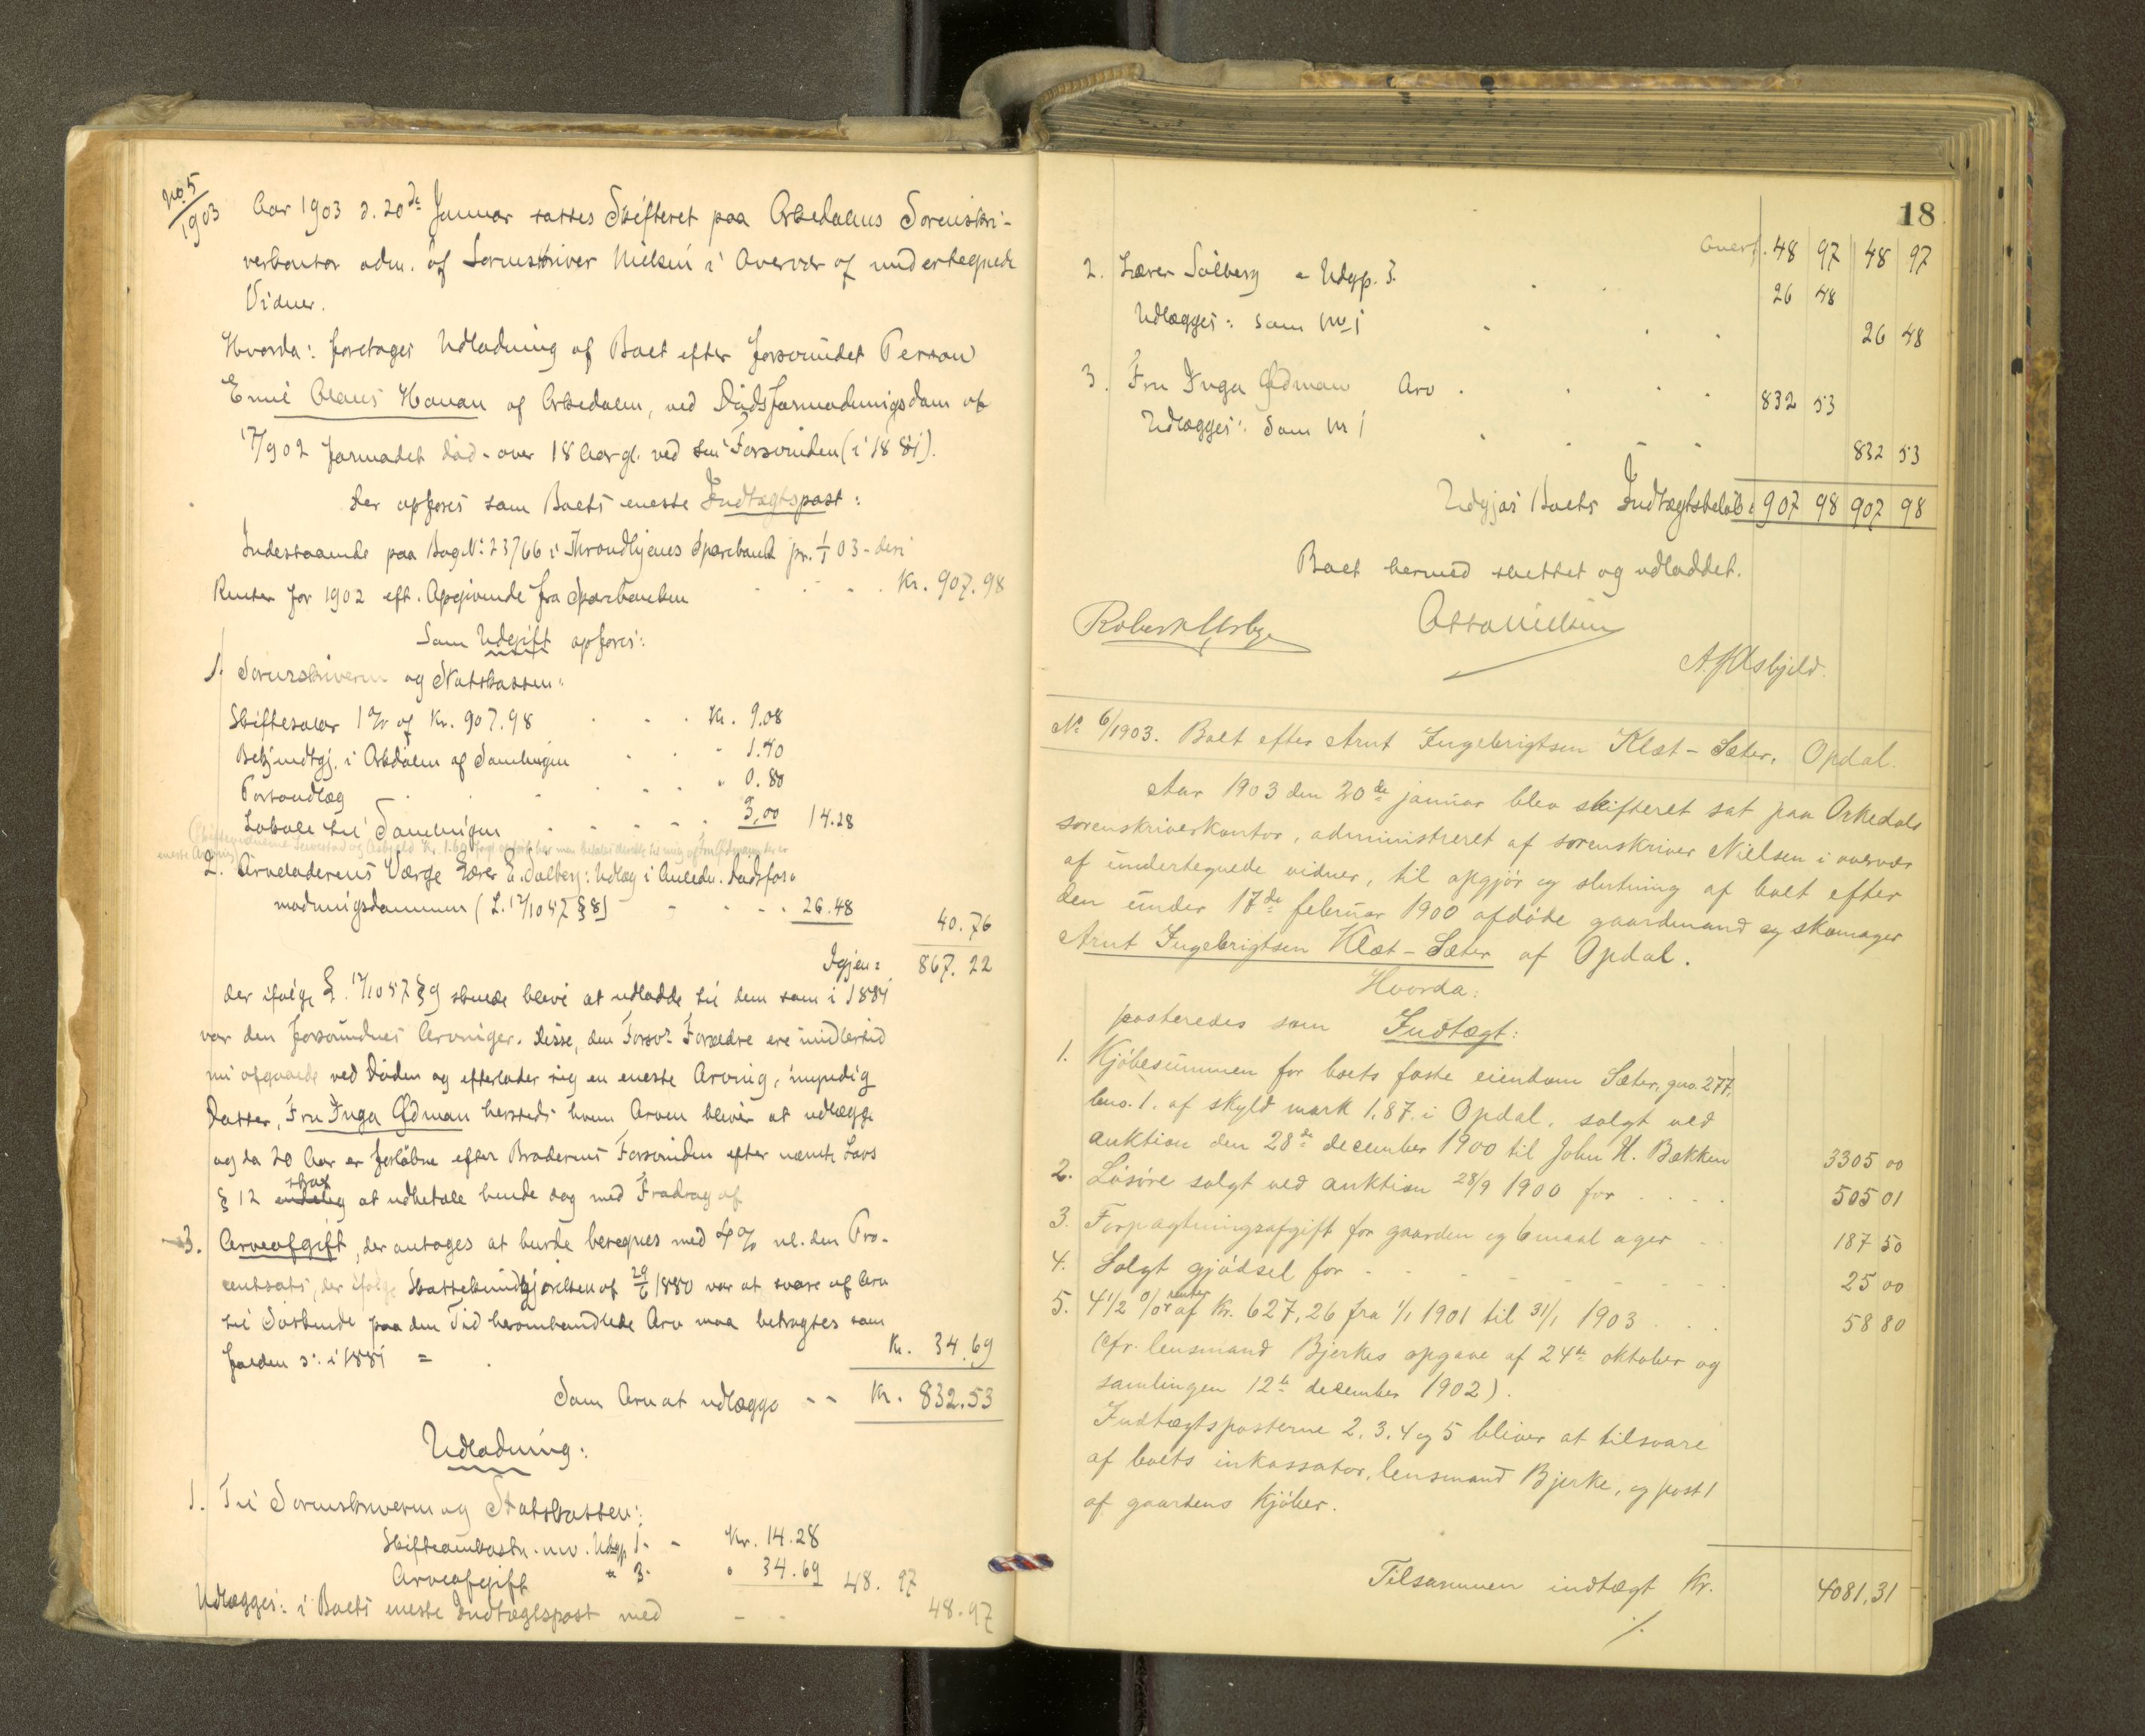 No. 5/1903
Aar 1903 d. 20de Januar sattes Skifteret paa Orkedalens Sorenskri-
verkontor adm. af Sorenskriver Nielsen i Overvær af undertegnede
Vidner.
Hvorda: foretages Udlodning af Boet efter forsvundet Person
Emil Olaus Hovan af Orkedalen, ved Dødsformodningsdom af
/902 formodet død - over 18 Aar gl. ved sin Forsvinden (i 1881).
Der opføres som Boets eneste Indtægtspost:
Indestaaende paa Bog No 23766 i Throndhjems Sparebank pr. 1/1 03 - deri
Renter for 1902 eft. Opgivende fra Sparebanken . . . . Kr. 907.98
Som Udgift opføres:
1. Sorenskriveren og Statskassen:
Skiftesalær 1 % af Kr. 907.98 . . . Kr. 9.08
Bekjendtgj. i Orkdalen af Samlingen . . " 1.40
Portoudlæg . . . . . " 0.80
Lokale til Samlingen . . . . . 3,00 14.28
eneste Arving
2. Arveladerens Værge Lærer E. Solberg: Udlæg i Anledn. Dødsfor-
modningsdommen (L. 12/10 57 § 8) - - . . 26.48 40.76
Igjen: 867.22
der ifølge L. 12/10 57 § 9 skulde blive at udlodde til dem som i 1881
var den forsvundnes Arvinger. Disse, den Forsv. Forældre ere imidlertid
nu afgaaede ved Døden og efterlader sig en eneste Arving, myndig
Datter, Fru Inga Ødman hersteds hvem Arven bliver at udlægge
og da 20 Aar er forløbne efter Broderens Forsvinden efter nævnte Lovs
§ 12 strax endelig at udbetale hende dog med Fradrag af
3. Arveafgift, der antages at burde beregnes med 4 % nl. den Pro-
centsats, der ifølge Skattekundgjørelsen af /1880 var at svare af Arv
til Søskende paa den Tid heromhandlede Arv maa betragtes som
falden o: i 1881 = . Kr. 34.69
Som Arv at udlægge - - Kr. 832.53
Udlodning:
1. Til Sorenskriveren og Statskassen:
Skifteomkostn. mv. Udgp. 1. - Kr. 14.28
Arveafgift " 3. " 34.69 48.97
Udlægges: i Boets eneste Indtægtspost med - - 48.97
18
Overf. 48 97 48 97
2. Lærer Solberg - Udgp. 3. . . 26 48
Udlægges: som No 1 . . . 26 48
3. Fru Inga Ødman Arv . . . . 832 53
Udlægges: som Nr 1 . . - - 832 53
Udgjør Boets Indtægtsbeløb: 907 98 907 98
Boet hermed sluttet og udloddet.
Otto Nielsen
A. J. Asbjeld.
No 6/1903. Boet efter Arnt Ingebrigtsen Klæt-Sæter, Opdal.
Aar 1903 den 20de januar blev skifteret sat paa Orkedals
sorenskriverkontor, administreret af sorenskriver Nielsen i overvær
af undertegnede vidner, til opgjør og slutning af boet efter
den under 17de februar 1900 afdøde gaardmand og skomager
Arnt Ingebrigtsen Klæt-Sæter af Opdal.
Hvorda:
posteredes som Indtægt:
1. Kjøbesummen for boets faste eiendom Sæter, gno. 277,
bno. 1. af skyld mark 1,87. i Opdal, solgt ved
auktion den 28de december 1900 til John H. Bækken 3305 00
2. Løsøre solgt ved auktion 28/9 1900 for . . . . 505 01
3. Forpagtningsafgift for gaarden og 6 maal ager . . 187 50
4. Solgt gjødsel for - - - - - - - . 25 00
5. 4 1/2 % renter af Kr. 627,26 fra 1/1 1901 til 31/1 1903 . . . 58 80
(cfr. lensmand Bjerkes opgave af 24de oktober og
samlingen 12te december 1902).
Indtægtsposterne 2, 3, 4 og 5 bliver at tilsvare
af boets inkassator, lensmand Bjerke, og post 1
af gaardens kjøber.
Tilsammen indtægt Kr. 4081,31
%.